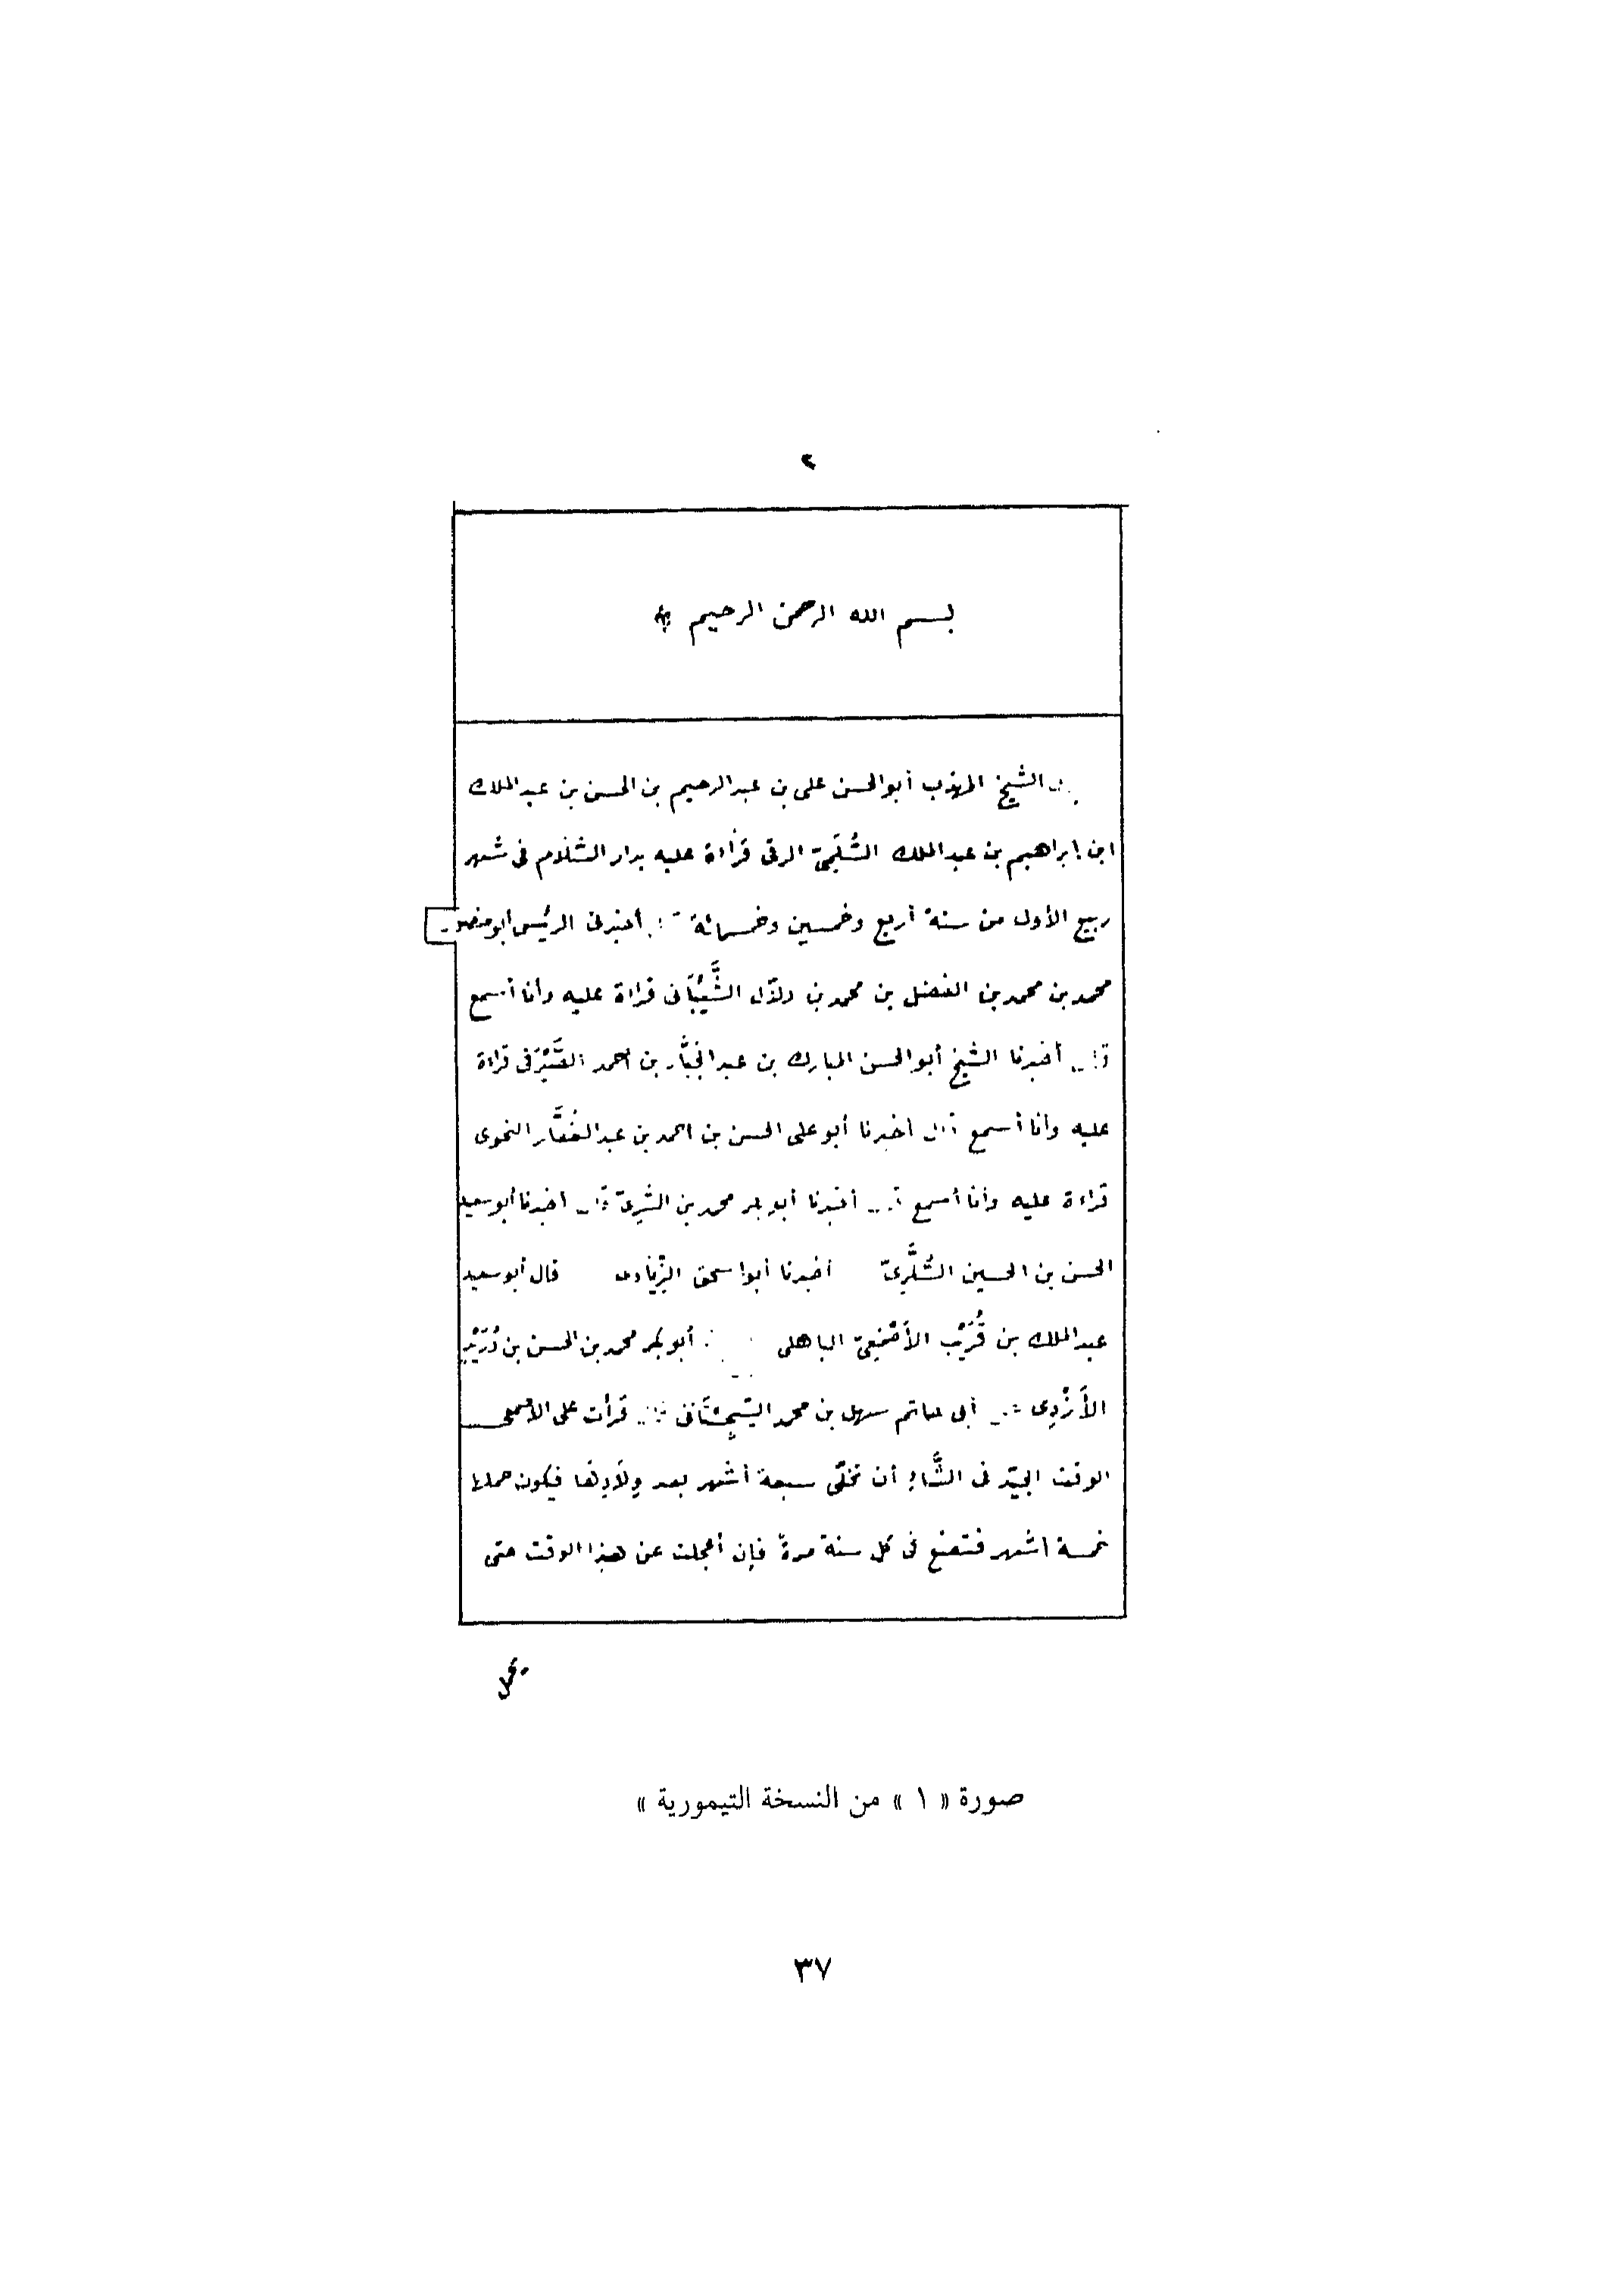 ٢
بسم الله الرحمن الرحيم
الشيخ المهذب أبو الحسن على بن عبد الرحيم بن الحسن بن عبد الملك
ابن ابراهيم بن عبد الملك السُّلَمِىّ الرقى قراءة عليه بدار السَّلام فى شهر
ربيع الأول من سنة أربع وخمسين وخمسمائة أخبرنى الرئيس أبو منصور
محمد بن محمد بن الفضل بن محمد بن دلّال الشَّيْبَانى قراءة عليه وأنا أسمع
قال أخبرنا الشيخ أبو الحسن المبارك بن عبد الجَبَّار بن أحمد الصَّيْرَفى قراءة
عليه وأنا أسمع قال اخبرنا أبو على الحسن بن احمد بن عبد الغَفَّار النحوى
قراءة عليه وأنا أسمع قال أخبرنا أبو بكر محمد بن السَّرِىّ قال اخبرنا أبو سعيد
الحسن بن الحسين السُّكَّرِىّ أخبرنا أبو اسحق الزِّيَادى قال أبو سعيد
عبد الملك بن قُرَيْب الأَصْمَعِىّ الباهلى أبو بكر محمد بن الحسن بن دُرَيْدٍ
الأَزْدِى أبى حاتم سهل بن محمد السِّجِسْتَانى قال قرأت على الأصمعى
الوقت الجيّد فى الشَّاءِ أن تخلّى سبعة أشهر بعد وِلَادِهَا فيكون حملها
خمسة اشهر فتضع فى كل سنة مرة فإن أعجلت عن هذا الوقت حتى
صورة « ١ » من النسخة التيمورية »
٣٧